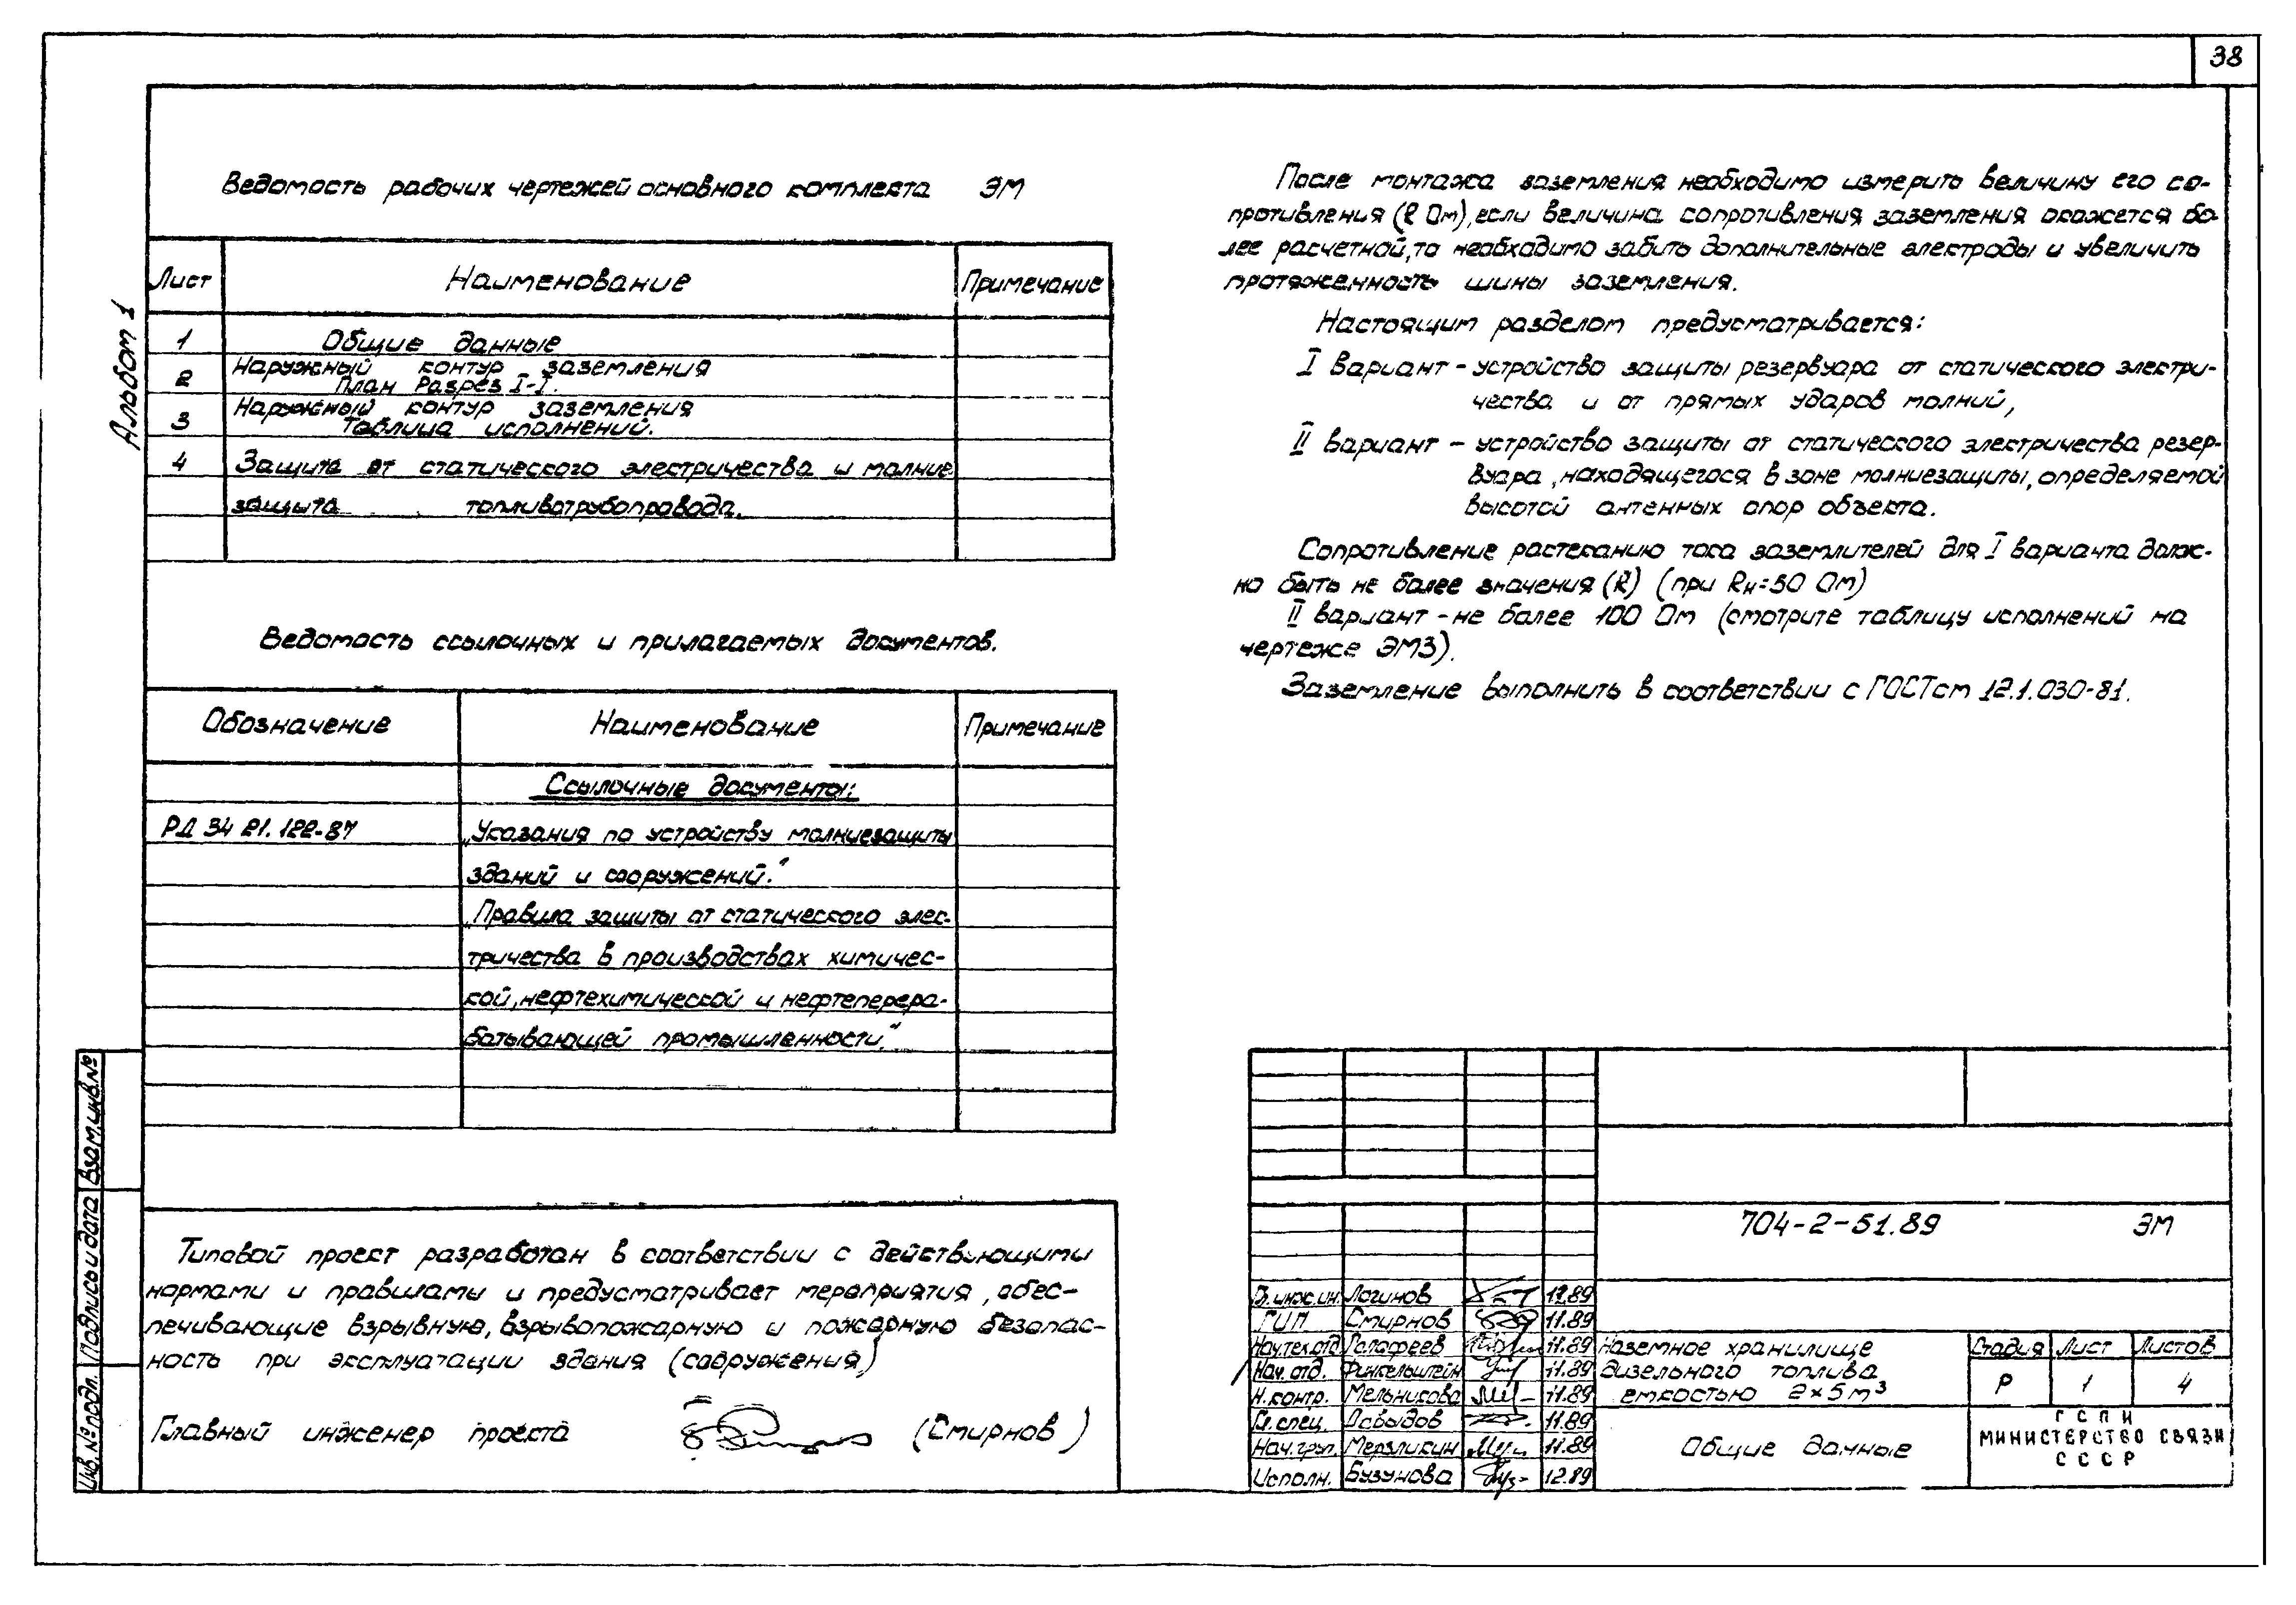 38
Альбом 1
Ведомость рабочих чертежей основного комплекта ЭМ
Лист Наименование Примечание
1 Общие данные
2 Наружный контур заземления
План Разрез I-I.
3 Наружный контур заземления
Таблица исполнений.
4 Защита от статического электричества и молние
защита топливотрубопровода.
Ведомость ссылочных и прилагаемых документов.
Обозначение Наименование Примечание
Ссылочные документы:
РД 34 21.122-87 „Указания по устройству молниезащиты
зданий и сооружений."
„Правила защиты от статического элек-
тричества в производствах химичес-
кой, нефтехимической и нефтеперера-
батывающей промышленности."
Типовой проект разработан в соответствии с действующими
нормами и правилами и предусматривает мероприятия, обес-
печивающие взрывную, взрывопожарную и пожарную безопас-
ность при эксплуатации здания (сооружения)
Главный инженер проекта (Смирнов)
После монтажа заземления необходимо измерить величину его со-
противления (R Ом), если величина сопротивления заземления окажется бо-
лее расчетной, то необходимо забить дополнительные электроды и увеличить
протяженность шины заземления.
Настоящим разделом предусматривается:
I вариант - устройство защиты резервуара от статического электри-
чества и от прямых ударов молний,
II вариант - устройство защиты от статического электричества резер-
вуара, находящегося в зоне молниезащиты, определяемой
высотой антенных опор объекта.
Сопротивление растеканию тока заземлителей для I варианта долж-
но быть не более значения (R) (при Rн=50 Ом)
II вариант - не более 100 Ом (смотрите таблицу исполнений на
чертеже ЭМ3).
Заземление выполнить в соответствии с ГОСТст 12.1.030-81.
Взам.инв.№
Подпись и дата
Инв.№ подл.
704-2-51.89 ЭМ
Гл.инж.ин. Логинов 12.89
ГИП Смирнов 11.89
Нач.тех.отд Голофеев 11.89
Нач.отд. Финкельштейн 11.89
Н.контр. Мельникова 11.89
Гл.спец. Давыдов 11.89
Нач.груп. Мерзликин 11.89
Исполн. Бузунова 12.89
Наземное хранилище
дизельного топлива
емкостью 2×5м³
Стадия Лист Листов
Р 1 4
Общие данные
ГСПИ
МИНИСТЕРСТВО СВЯЗИ
СССР